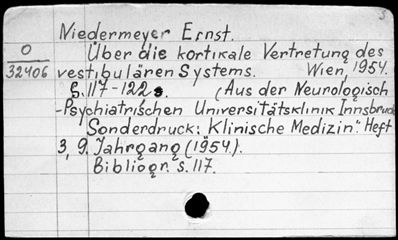 Niedermeyer Ernst.
O Über die kortikale Vertretung des
32406 vestibulären Systems. Wien, 1954.
S. 117-122 s. (Aus der Neurologisch
-Psychiatrischen Universitätsklinik Innsbruck
Sonderdruck: Klinische Medizin". Heft
3, 9. Jahrgang (1954).
Bibliogr. s. 117.